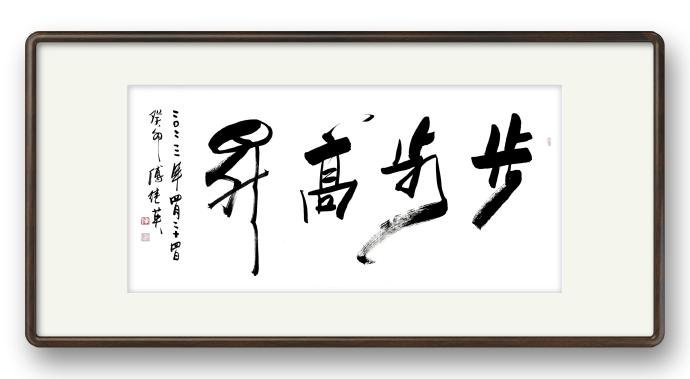 步步高昇
二〇二三年四月二十四日
癸卯 傅 英